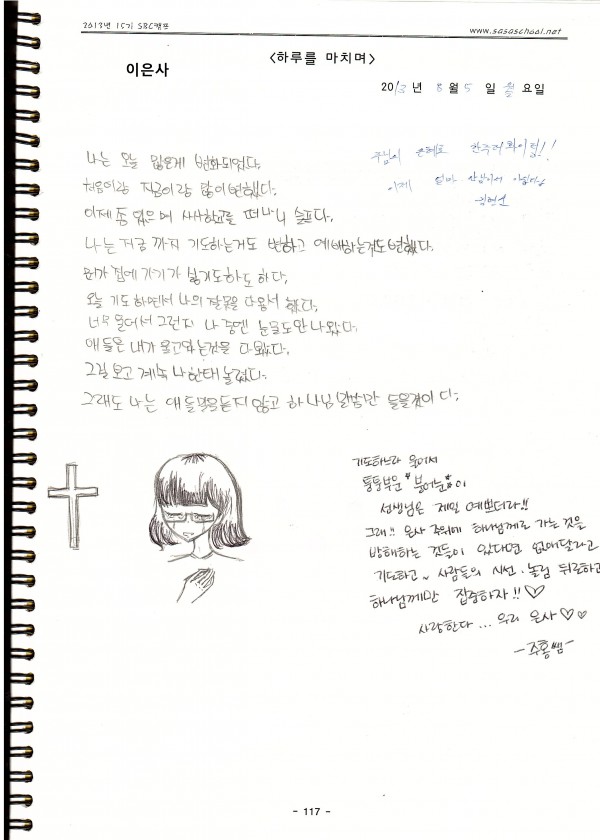 2013년 15기 SRC캠프
www.sasaschool.net
이은사
<하루를 마치며>
2013 년 8 월 5 일 월 요일
주님의 은혜로 한주간 화이팅!!
이제 엄마
나는 오늘 많은게 변화되었다.
처음이랑 지금이랑 많이 변했다.
이제 좀 있으며 사사학교를 떠나니 슬프다.
나는 지금 까지 기도하는거도 변하고 예배하는거도 변했다.
뭔가 집에 가기가 싫기도하도 하다.
오늘 기도하면서 나의 잘못을 다 용서 했다.
너무 울어서 그런지 나중엔 눈물도 안나왔다.
애들은 내가 울고 는것을 다 봤다.
그걸 보고 계속 나한태 놀렸다.
그래도 나는 애들 을 듣지 않고 하나님 말씀만 들을것이다.
기도하느라 울어서
퉁퉁부은 "붕어눈"이
선생님은 제일 예쁘더라!!
그래!! 은사 주위에 하나님께로 가는 것을
방해하는 것들이 있다면 없애달라고
기도하고~ 사람들의 시선·놀림 뒤로하고
하나님께만 집중하자!!♡
사랑한다... 우리 은사♡♡
-주홍쌤-
- 117 -